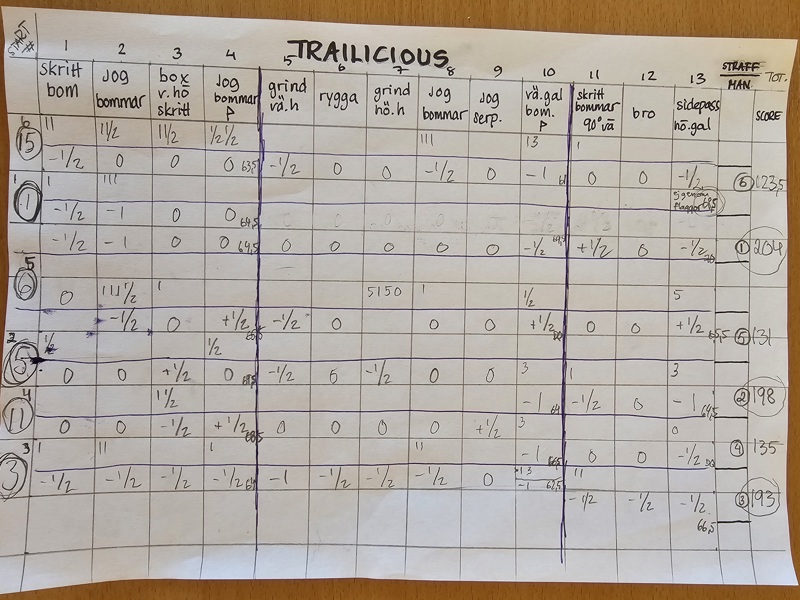 TRAILICIOUS
START # 1 2 3 4 5 6 7 8 9 10 11 12 13 STRAFF/MAN TOT. SCORE
skritt bom
Jog bommar
box v. hö skritt
Jog bommar P
grind vä.h
rygga
grind hö.h
Jog bommar
Jog serp.
vä.gal bom. P
skritt bommar 90° vä
bro
sidepass hö.gal
6 15 II II½ II½ ½½ III 13 I
-½ 0 0 0 63,5 -½ 0 0 -½ 0 -1 61 0 0 -½ 6 123,5
1 1 I III
-½ -1 0 0 64,5
-½ -1 0 0 64,5 0 0 0 0 0 -½ 69,5 +½ 0 -½ 70 1 204
5 6 0 III½ I 5150 I ½ 5
-½ 0 +½ -½ 0 0 0 +½ 70 0 0 +½ 65,5 5 131
2 5 ½ ½
0 0 +½ 0 -½ 0 -½ 0 0 3 I 3
4 11 I½ -1 69 -½ 0 -1 64,5 2 198
0 0 -½ +½ 68,5 0 0 0 0 +½ 3 0
3 3 I II I II -1 66,5 0 0 -½ 70 4 135
-½ -½ -½ -½ -1 -½ -½ -½ 0 13 -1 62,5 II
-½ -½ -½ 66,5 3 193